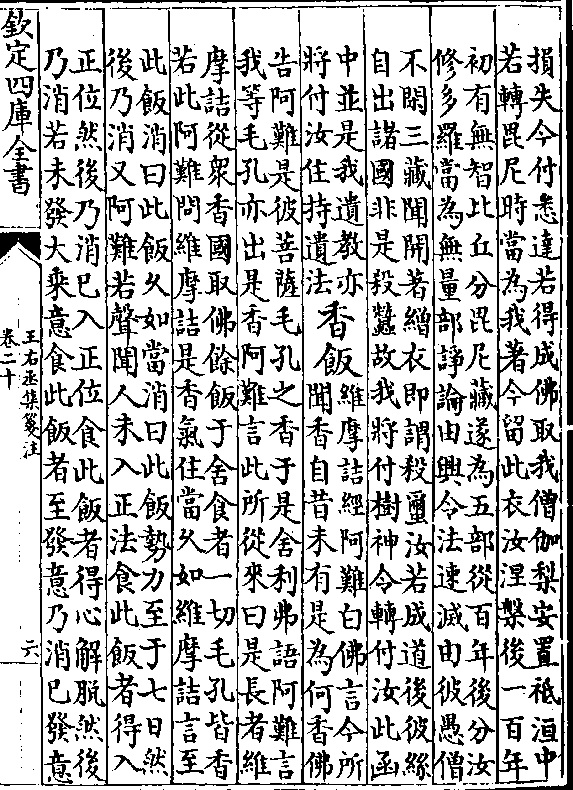 損失今付悉達若得成佛取我僧伽梨安置祇洹中
若轉毘尼時當為我著今留此衣汝涅槃後一百年
初有無智比丘分毘尼藏遂為五部從百年後分汝
修多羅當為無量部諍論由興令法速滅由彼愚僧
不閑三藏聞開著繒衣即謂殺壐汝若成道後彼絲
自出諸國非是殺蠶故我將付樹神令轉付汝此函
中並是我遺教亦
將付汝住持遺法
香飯
維摩詰經阿難白佛言今所
聞香自昔未有是為何香佛
告阿難是彼菩薩毛孔之香于是舍利弗語阿難言
我等毛孔亦出是香阿難言此所從來曰是長者維
摩詰從衆香國取佛餘飯于舍食者一切毛孔皆香
若此阿難問維摩詰是香氣住當久如維摩詰言至
此飯消曰此飯久如當消曰此飯勢力至于七日然
後乃消又阿難若聲聞人未入正法食此飯者得入
正位然後乃消已入正位食此飯者得心解脫然後
乃消若未發大乘意食此飯者至發意乃消已發意
欽定四庫全書
王右丞集箋注
卷二十
六